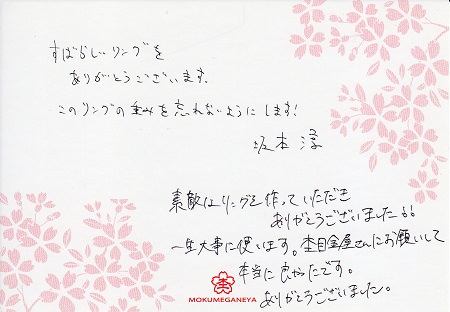 すばらしいリングを
ありがとうございます。
このリングの重みを忘れないようにします!
坂本 淳
素敵なリングを作っていただき
ありがとうございました!!
一生大事に使います。杢目金屋さんにお願いして
本当に良かったです。
ありがとうございました。
杢
MOKUMEGANEYA